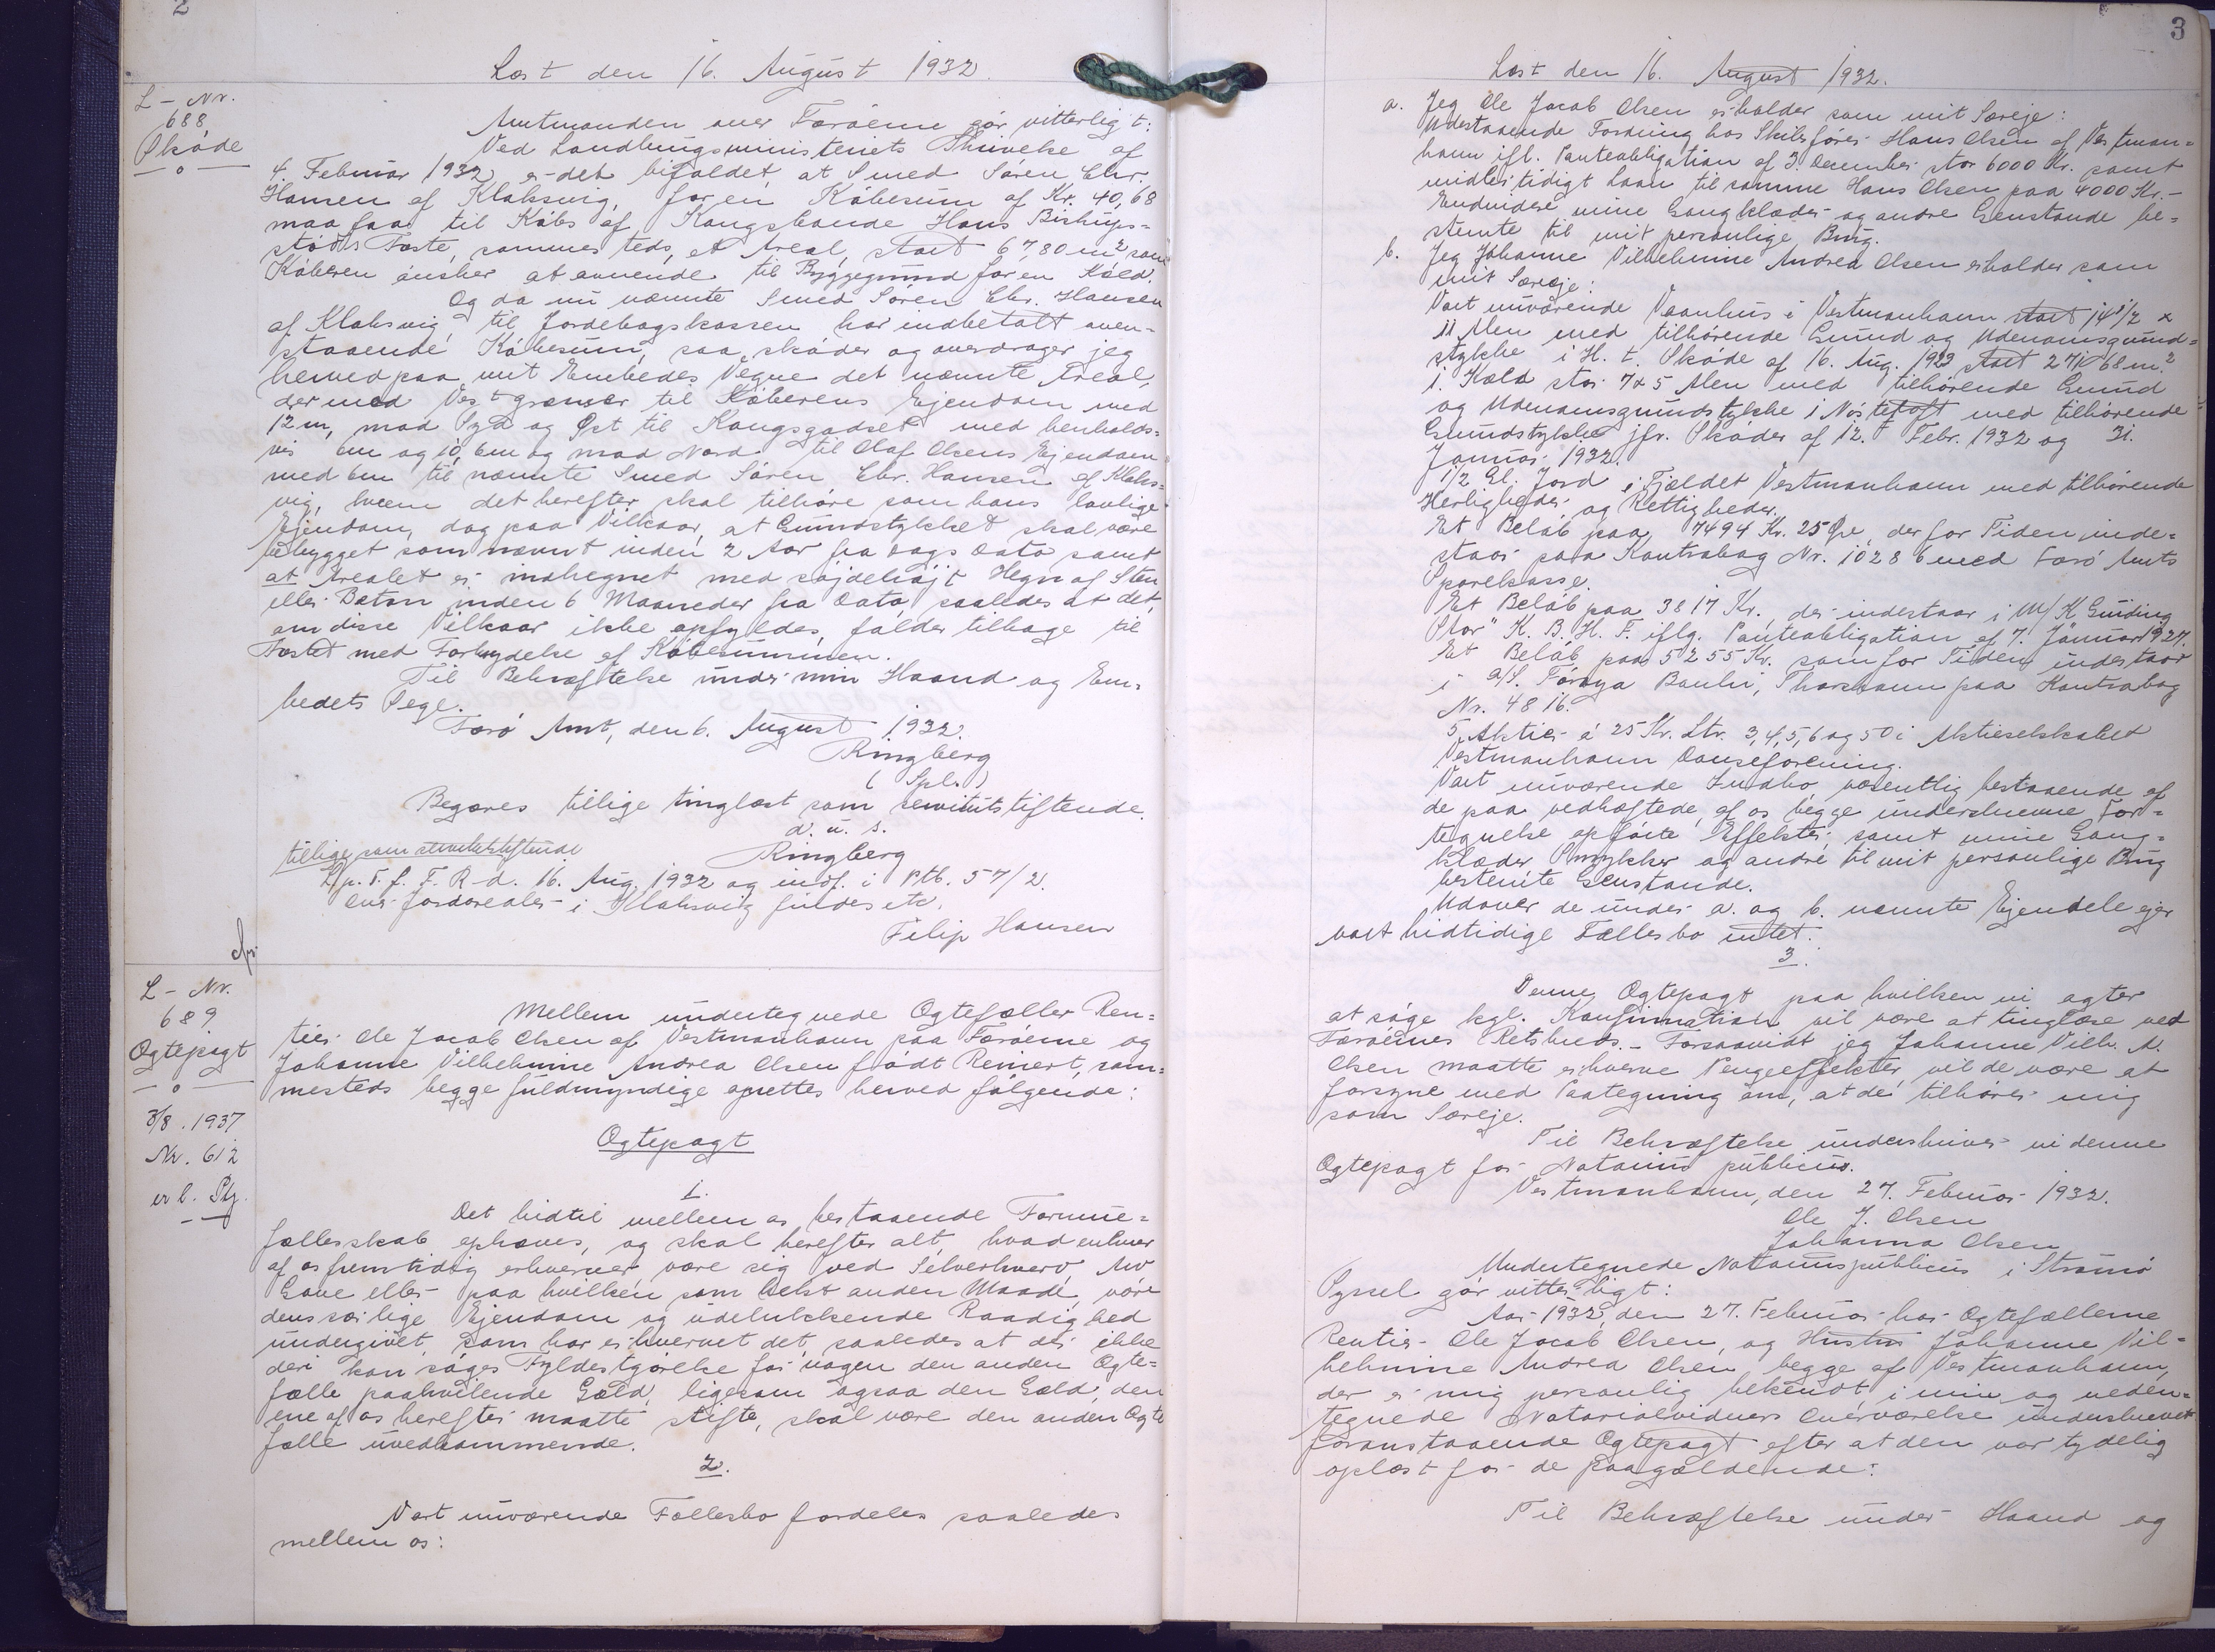 2
Læst den 16. August 1932.
L - Nr.
688
Skøde
Amtmanden over Færøerne gör vitterligt:
Ved Landbrugsministeriets Skrivelse af
4. Februar 1932 er det bifaldet, at Smed Sören Chr.
Hansen af Klaksvig, for en Köbesum af Kr. 40,68
maa faa til Köbs af Kongsbonde Hans Biskups-
støds Fæste, sammesteds, et Areal, stort 67,80 m² som
Köberen önsker at anvende til Byggegrund for en Kæld.
Og da nu nævnte Smed Sören Chr. Hansen
af Klaksvig til Jordebogskassen har indbetalt oven-
staaende Köbesum, saa sköder og overdrager jeg
herved paa mit Embedes Vegne det nævnte Areal,
der mod Vest grænser til Köberens Ejendom med
12 m, mod Syd og Øst til Kongsgodset med henholds-
vis 6m og 10,6m og mod Nord til Olaf Olsens Ejendom
med 6m til nævnte Smed Sören Chr. Hansen af Klaks-
vig, hvem det herefter skal tilhöre som hans lovlige
Ejendom, dog paa Vilkaar, at Grundstykket skal være
bebygget som nævnt inden 2 Aar fra Dags Dato samt
at Arealet er indhegnet med söjdehöjt Hegn af Sten
eller Beton inden 6 Maaneder fra Dato, saaledes at det,
om disse Vilkaar ikke opfyldes, falder tilbage til
Fæstet med Forbrydelse af Köbesummen.
Til Bekræftelse under min Haand og Em-
bedets Segl.
Færö Amt, den 6. August 1932.
Ringberg
Begæres tillige tinglæst som servitutstiftende.
d. u. s.
Ringberg
tillige som servitutstiftende
L. p. T. f. F. R-d. 16. Aug. 1932 og indf. i Ptb. 57/2.
over Jordarealer i Klaksvig findes etc.
Filip Hansen
L - Nr.
689
Ögtepagt
3/8. 1937
Nr. 612
Mellem undertegnede Ögtefæller Ren-
tier Ole Jacob Olsen af Vestmanhavn paa Færöerne og
Johanne Vilhelmine Andrea Olsen födt Reinert, sam-
mesteds begge fuldmyndige oprettes herved følgende:
Ögtepagt
1.
Det hidtil mellem os bestaaende Formue-
fællesskab ophæves, og skal herefter alt, hvad enhver
af os fremtidig erhverver være sig ved Selverhverv, Arv
Gave eller paa hvilken som helst anden Maade, være
dens særlige Ejendom og udelukkende Raadighed
undergivet, som har erhvervet det, saaledes at der ikke
deri kan söges Fyldestgörelse for nogen den anden Ögte-
fælle paahvilende Gæld, ligesom ogsaa den Gæld, den
ene af os herefter maatte stifte, skal være den anden Ögte
fælle uvedkommende.
2.
Vort nuværende Fællesbo fordeles saaledes
mellem os:
3
Læst den 16. August 1932.
a. Jeg Ole Jacob Olsen erholder som mit Særeje:
Udestaaende Fordring hos Skibsförer Hans Olsen af Vestman-
havn ifl. Panteobligation af 3. December stor 6000 Kr. samt
midlertidigt Laan til samme Hans Olsen paa 4000 Kr.-
Endvidere mine Gangklæder og andre Genstande be-
stemte til mit personlige Brug.
b. Jeg Johanne Vilhelmine Andrea Olsen erholder som
mit Særeje:
Vort nuværende Vaanhus i Vestmanhavn stort 14 1/2 x
11 Alen med tilhörende Grund og Udenomsgrund-
stykke i H. t. Sköde af 16. Aug. 1922 stort 271,68 m.²
1 Kæld stor 7x5 Alen med tilhörende Grund
og Udenomsgrundstykke i Nöstetoft med tilhörende
Grundstykke jfr. Sköder af 12. Febr. 1932 og 31.
Januar 1932.
1/2 Gl. Jord i Fjældet Vestmanhavn med tilhörende
Herligheder og Rettigheder.
Et Belöb paa 7494 Kr. 25 Øre, der for Tiden inde-
staar paa Kontrabog Nr. 10286 med Færö Amts
Sparekasse.
Et Belöb paa 3817 Kr., der indestaar i M/K. Guiding
Star" K. B. H. F. iflg. Panteobligation af 7. Januar 1927.
Et Belöb paa 5255 Kr. som for Tiden indestaar
i A/S. Föroya Banki, Thorshavn paa Kontrabog
Nr. 4816.
5 Aktier á 25 Kr. Ltr. 3,4,5,6 og 50 i Aktieselskabet
Vestmanhavn Danseforening.
Vort nuværende Indbo, væsentlig bestaaende af
de paa vedhæftede, af os begge underskrevne For-
tegnelse opförte Effekter, samt mine Gang-
klæder Smykker og andre til mit personlige Brug
bestemte Genstande.
Udover de under a. og b. nævnte Ejendele ejer
vort hidtidige Fællesbo intet.
3.
Denne Ögtepagt paa hvilken vi agter
at söge kgl. Konfirmation vil være at tinglæse ved
Færöernes Retskreds.- Forsaavidt jeg Johanne Vilh. A.
Olsen maatte erhverve Pengeeffekter vil de være at
forsyne med Paategning om, at de tilhörer mig
som Særeje.
Til Bekræftelse underskriver vi denne
Ögtepagt for Notarius publicus.
Vestmanhavn, den 27. Februar 1932.
Ole J. Olsen
Johanna Olsen
Undertegnede Notarius publicus i Strömö
Syssel gör vitterligt:
Aar 1932, den 27. Februar har Ögtefællerne
Rentier Ole Jacob Olsen, og Hustru Johanne Vil-
helmine Andrea Olsen, begge af Vestmanhavn,
der er mig personlig bekendt, i min og neden-
tegnede Notarialvidners Overværelse underskrevet
foranstaaende Ögtepagt efter at den var tydelig
oplæst for de paagældende:
Til Bekræftelse under Haand og